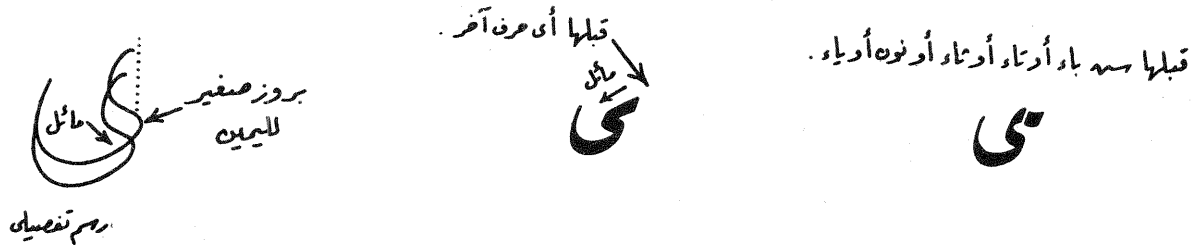 قبلها سن باء أو تاء أو ثاء أو نون أو ياء .
قبلها أى حرف آخر .
مائل
ى
ى
بروز صغير
لليمين
مائل
رسم تفصيلى